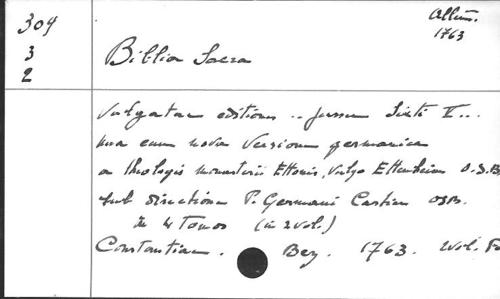 309
3
2
Allem.
1763
Biblia Sacra
Vulgatae editionis .. jussu Sixti V...
una cum nova Versione germanica
a theologis monasterii Ettonis, vulgo Ettenheim O.S.B
sub directione P. Germani Cartier OSB.
In 4 Tomos (in 2 vol.)
Constantiae. Bez. 1763. 2 vol. Fo